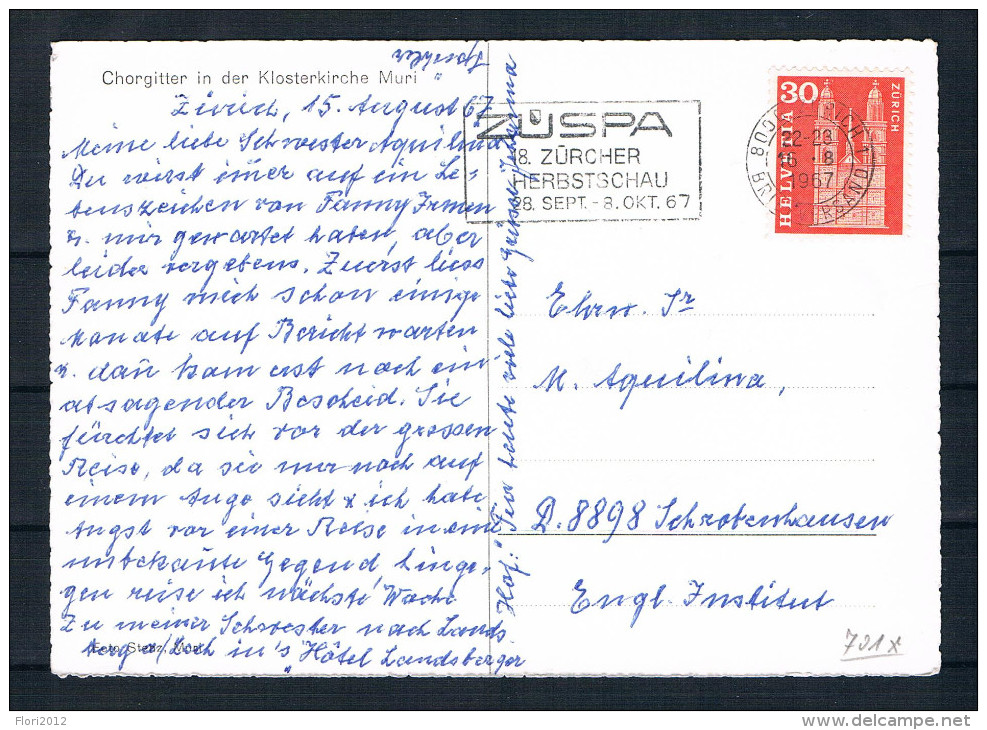 Chorgitter in der Klosterkirche Muri
Zürich, 15. August 67
Meine liebe Schwester Aquilina
Du wirst imer auf ein Le-
benszeichen von Fanny Irmen
u. mir gewartet haben, aber
leider vergebens. Zuerst liess
Fanny mich schon einige
Monate auf Bericht warten
u. dañ kam erst noch ein
absagender Bescheid. Sie
fürchtet sich vor der grossen
Reise, da sie nur noch auf
einem Auge sieht & ich habe
Angst vor einer Reise in eine
unbekañte Gegend, hinge-
gen reise ich nächste Woche
zu meiner Schwester nach Lands-
berg a/Lech in's "Hôtel Landsberger
Hof." Für heute viele liebe Grüsse Johanna
Foto Muri
ZÜSPA
18. ZÜRCHER
HERBSTSCHAU
28. SEPT.-8. OKT. 67
30
ZÜRICH
HELVETIA
22-23
16 -8
1967
Ehrw. Sr
M. Aquilina,
D. 8898 Schrobenhausen
Engl. Institut
701x
Flori2012
delcampe.net